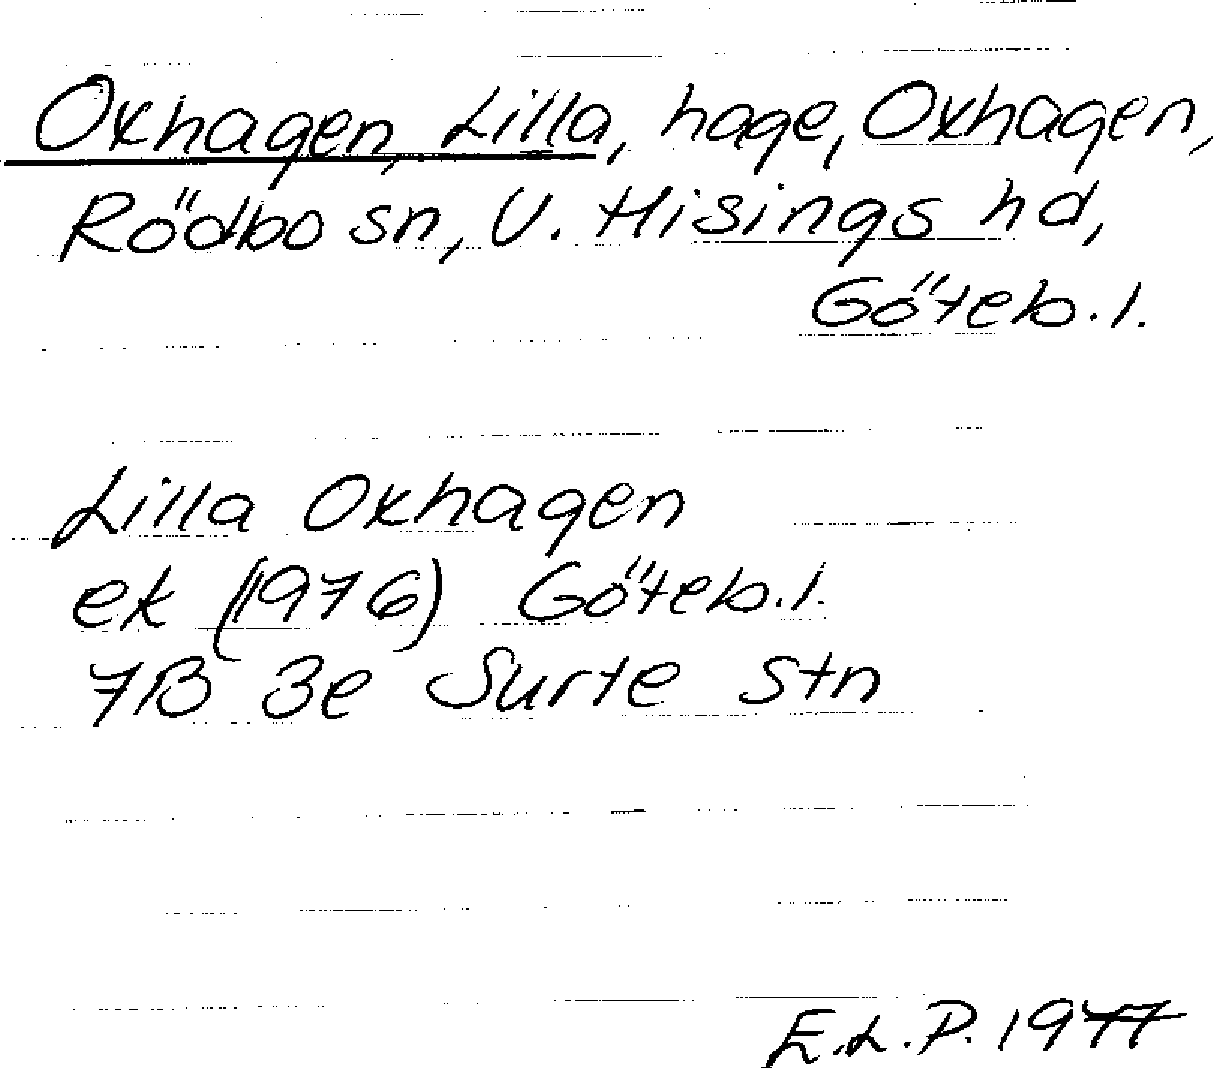 Oxhagen, Lilla, hage, Oxhagen,
Rödbo sn, V. Hisings hd,
Göteb.l.
Lilla Oxhagen
ek (1976) Göteb.l.
7B 3e Surte stn
E.L.P. 1977